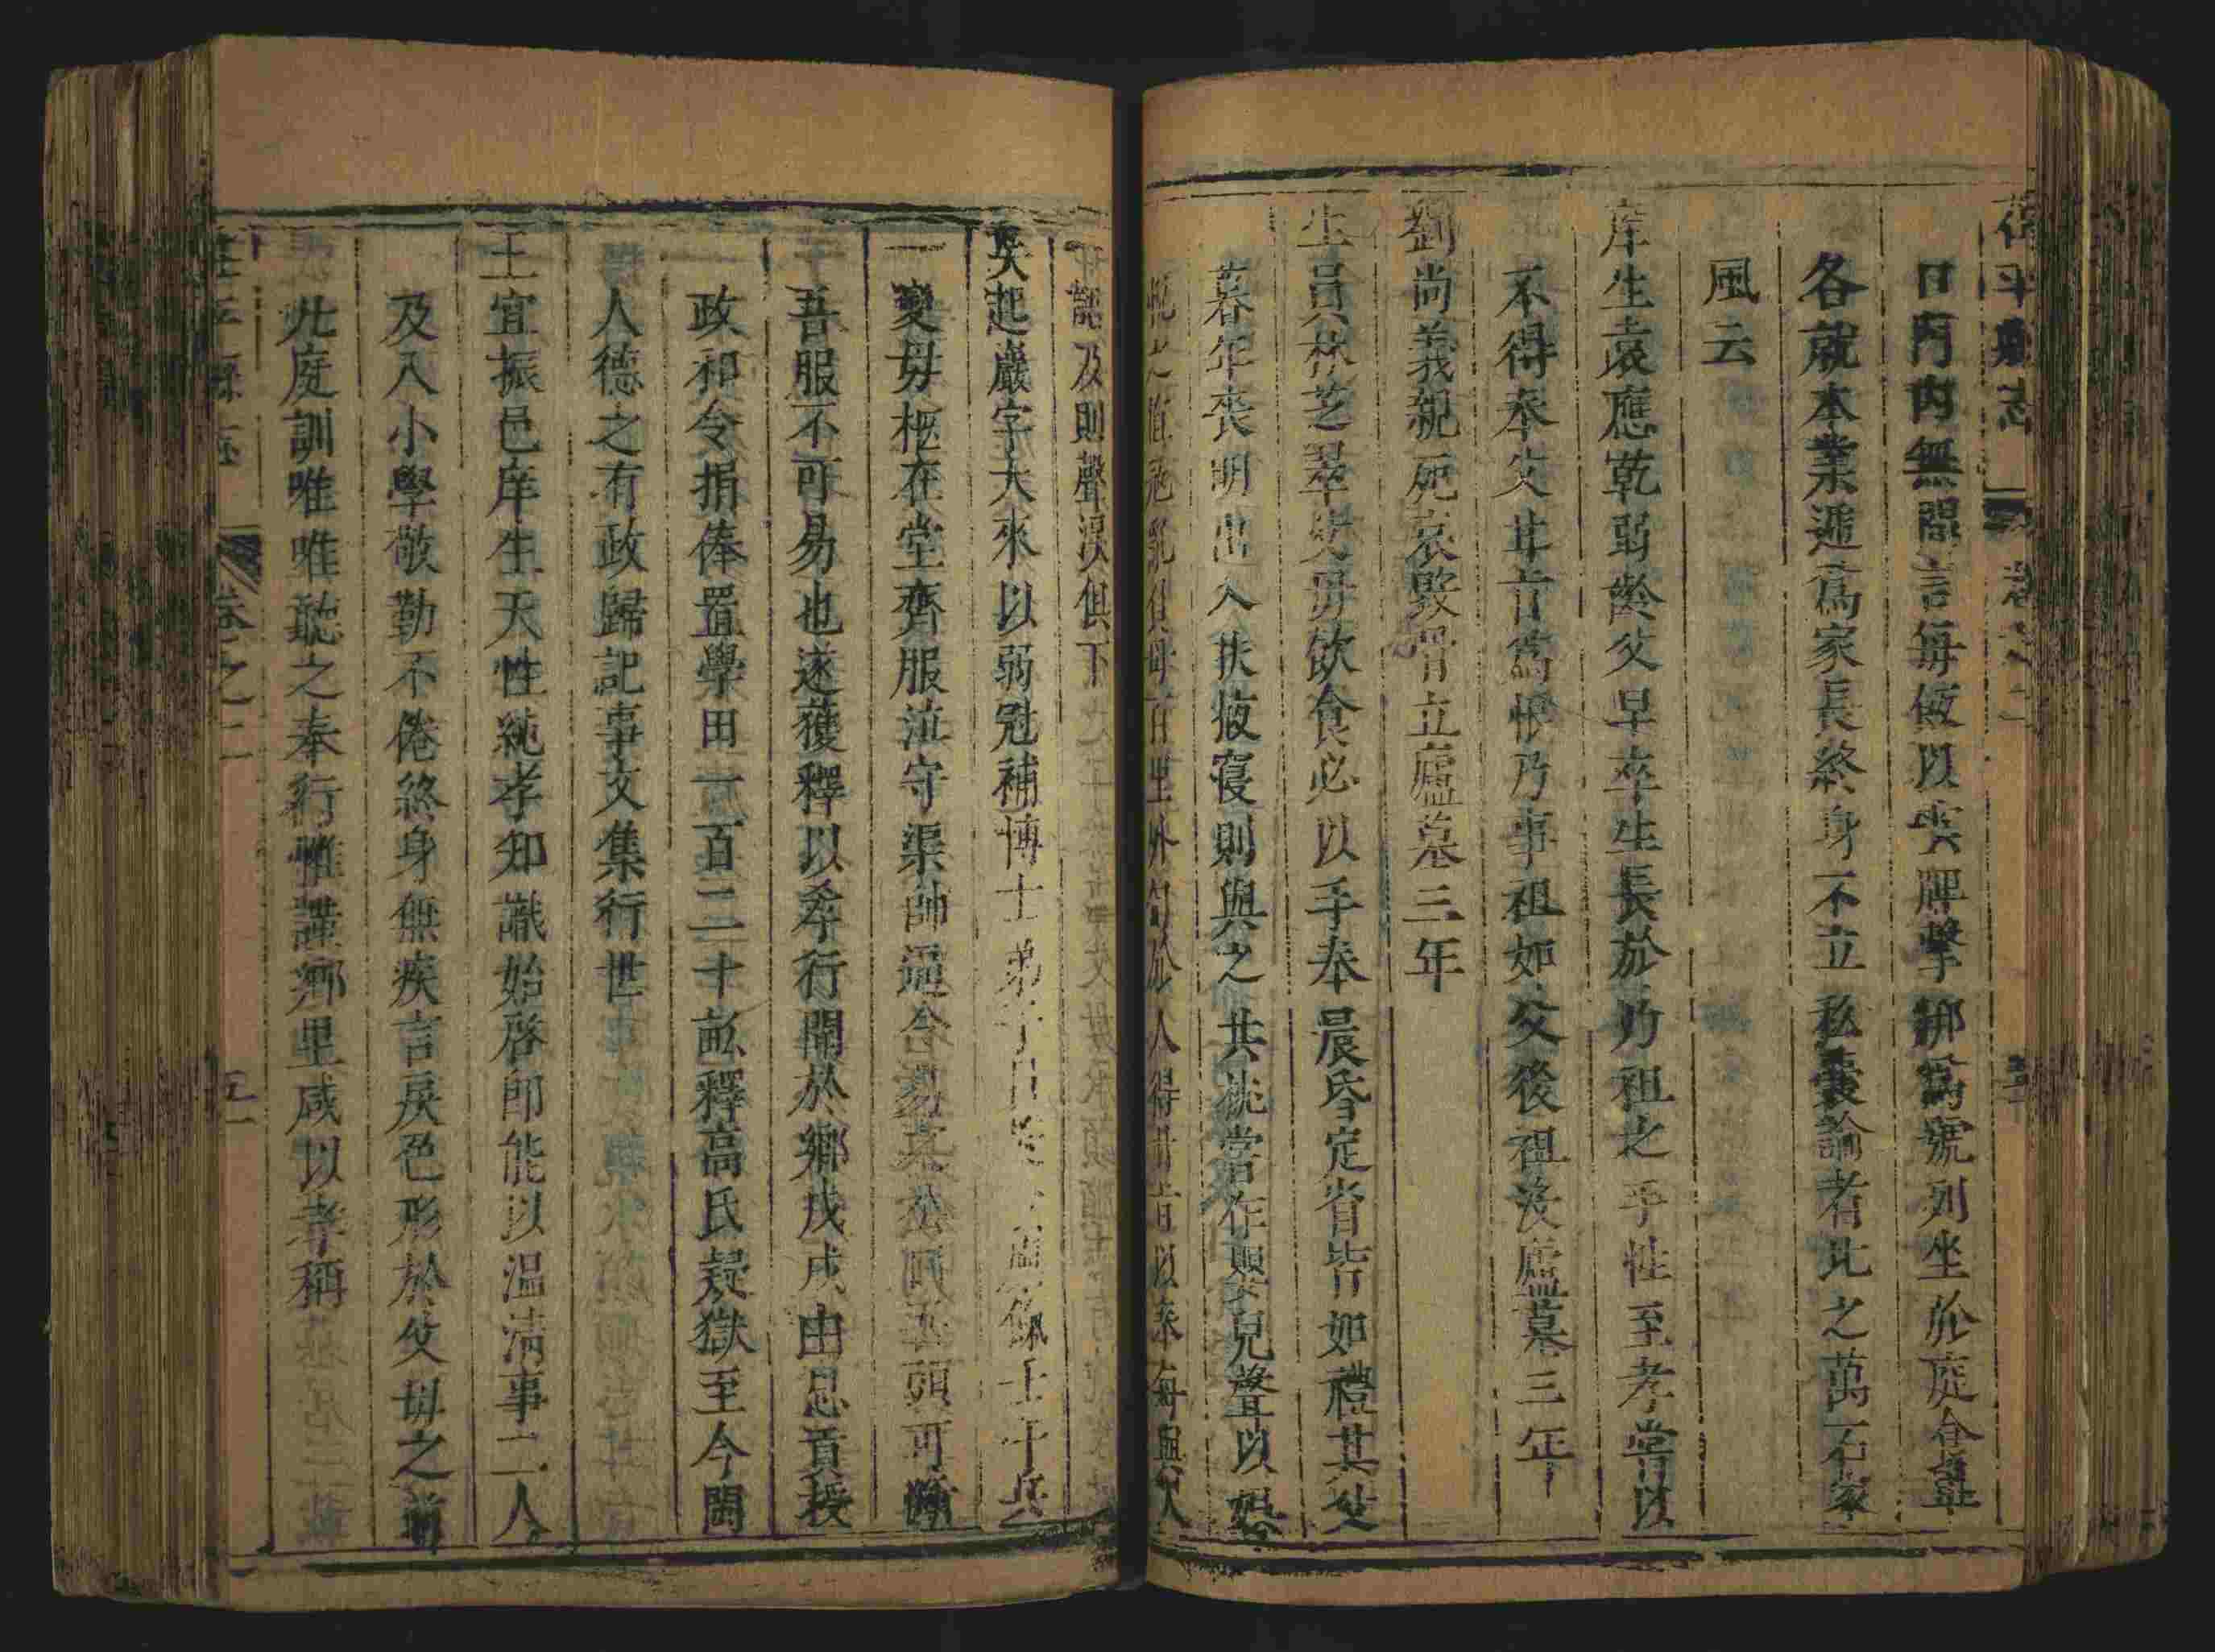 日內內無間言每夜以雲牌擊梆爲號列坐於庭合韋
各就本業遞爲家長終身不立私囊論者比之萬石家
風云
庠生袁應乾弱齡父早卒生長於乃祖之手性至孝嘗以
不得奉父甘旨爲恨乃事祖如父後祖沒廬墓三年
劉尚義親死哀毀骨立廬墓三年
生員林芝翠父母飲食必以手奉晨昏定省皆如禮其父
暮年喪明出入扶掖寢則與之共桃嘗作嬰兒聲以娛
之 寇亂負母百里外 於人得甘旨以奉每與人
語及則聲淚俱下
吳起巖字大來以弱冠補博士弟子員 壬午兵
一變母柩在堂齊服泣守渠帥逼令易 公 吾頭可斷
吾服不可易也遂獲釋以孝行聞於鄉戊戌由恩貢授
政和令捐俸置學田一百二十畝釋高氏疑獄至今閩
人德之有政歸記事文集行世
王宜振邑庠生天性純孝知識始啓即能以溫凊事二人
及入小學敬勤不倦終身無疾言戾色形於父母之前
北庭訓唯唯聽之奉行惟謹鄉里咸以孝稱
卷之二 五一